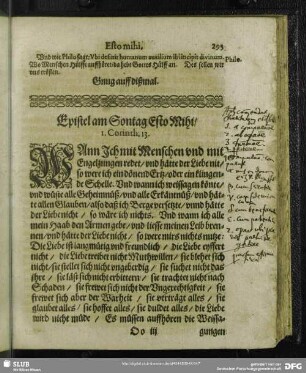 Esto mihi. 293
Und wie Philo sagt: Ubi desinit humanum auxilium ibi incipit divinum. Philo.
Wo Menschen Hülffe auffhöret / da hebt Gottes Hülff an. Des sollen wir
uns trösten.
Gnug auff dißmal.
Epistel am Sontag Esto Mihi /
1. Corinth. 13.
WAnn Jch mit Menschen und mit
Engelzungen redet / und hätte der Liebe nit /
so were ich ein dönend Ertz / oder ein klingen-
de Schelle. Und wann ich weissagen könte /
und wüste alle Geheimnüß / und alle Erkändnüß / und hät-
te allen Glauben / also daß ich Berge versetzte / und hätte
der Liebe nicht / so wäre ich nichts. Und wann ich alle
mein Haab den Armen gebe / und liesse meinen Leib bren-
nen / und hätte der Liebe nicht / so were mirs nichts nutze.
Die Liebe ist langmütig und freundlich / die Liebe eyffert
nicht / die Liebe treibet nicht Muthwillen / sie blehet sich
nicht / sie stellet sich nicht ungeberdig / sie suchet nicht das
ihre / sie läst sich nicht erbittern / sie trachtet nicht nach
Schaden / sie frewet sich nicht der Ungerechtigkeit / sie
frewet sich aber der Warheit / sie verträgt alles / sie
glaubet alles / sie hoffet alles / sie duldet alles / die Liebe
wird nicht müde / Es müssen auffhören die Weissa-
Oo iij gungen
SLUB
Wir führen Wissen.
DFG
gefördert von der
Deutschen Forschungsgemeinschaft